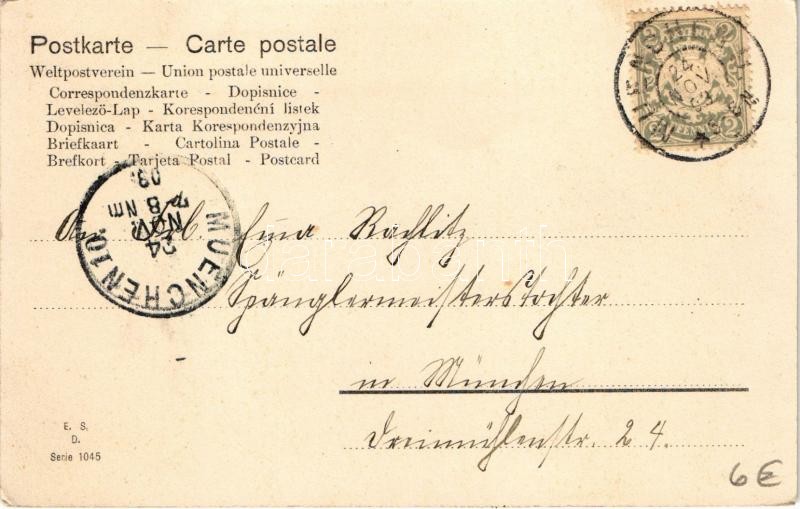 Postkarte — Carte postale
Weltpostverein — Union postale universelle
Correspondenzkarte - Dopisnice -
Levelezö-Lap - Korespondenéní listek
Dopisnica - Karta Korespondenzyjna
Briefkaart - Cartolina Postale -
Brefkort - Tarjeta Postal - Postcard
24
NOV
2 2
MUENCHEN 10.
24
NOV
8 Nm
03
An Frl. Emma Rachlitz
Spänglermeisterstochter
in München
Dreimühlenstr. 24.
E. S.
D.
Serie 1045
6€